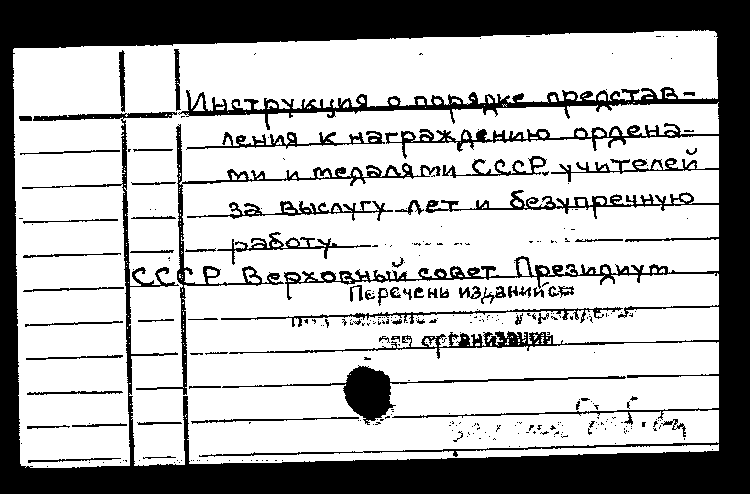 Инструкция о порядке представ-
ления к награждению ордена-
ми и медалями СССР учителей
за выслугу лет и безупречную
работу.
СССР. Верховный совет. Президиум.
Перечень изданий см
под учреждения
организации